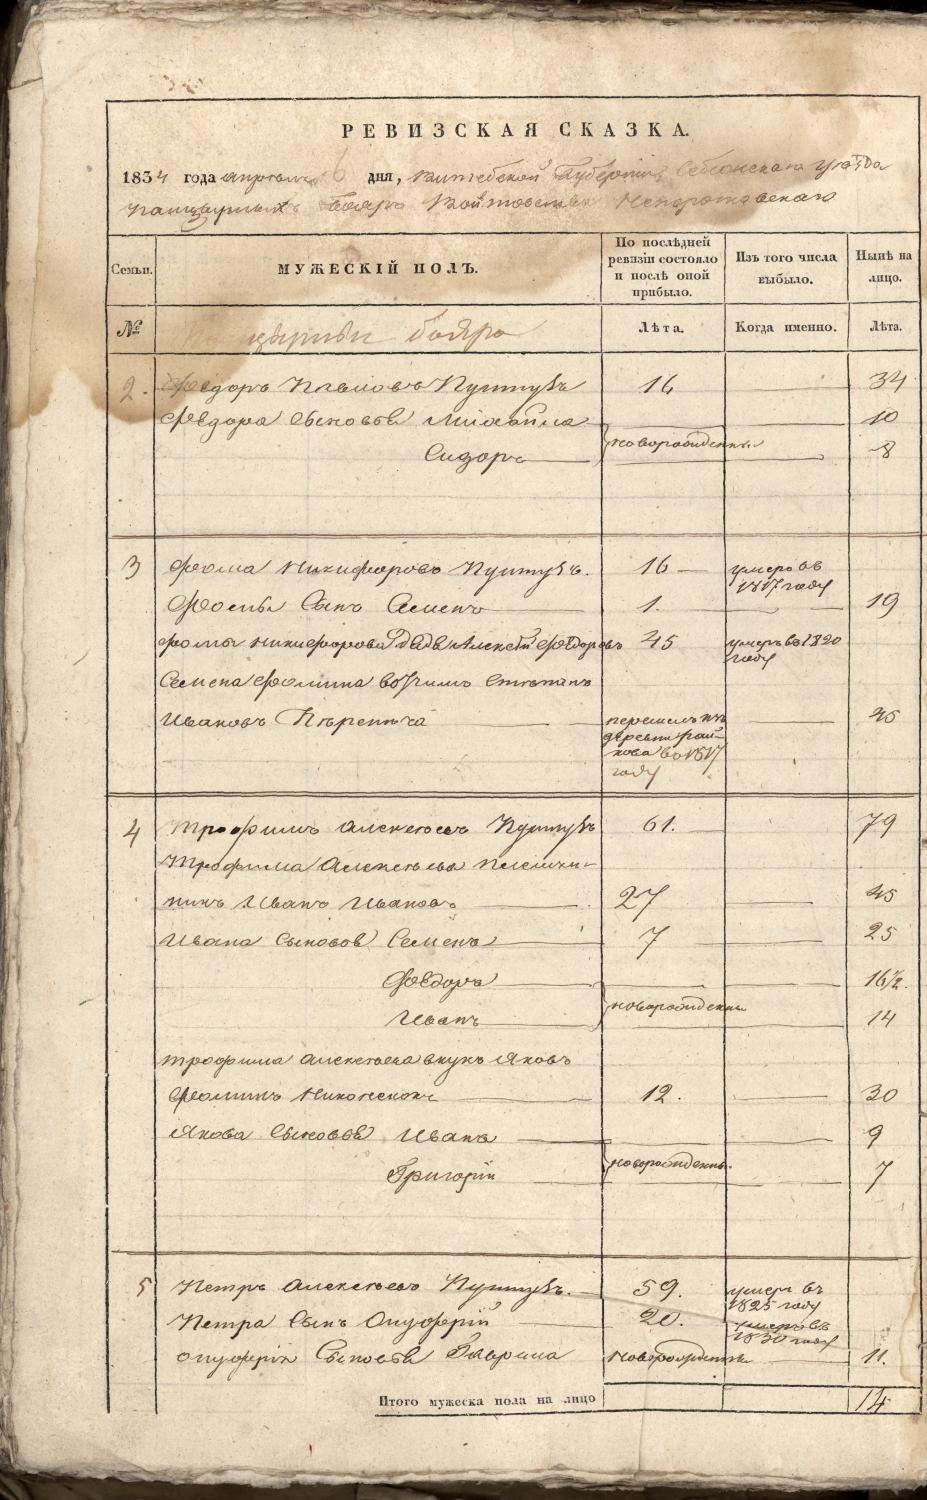 РЕВИЗСКАЯ СКАЗКА.
1834 года апреля 6 дня, Витебской Губернии Себежскаго уезда
панцырныхъ бояръ Войтовства Непоротовскаго
Семьи.
МУЖЕСКІЙ ПОЛЪ.
По послѣдней ревизіи состояло и послѣ оной прибыло.
Изъ того числа выбыло.
Нынѣ на лицо.
№
цырные бояре
Лѣта.
Когда именно.
Лѣта.
2. Федоръ Павловъ 16 34
Федора сыновья Михайла 10
новорожденны
Сидоръ 8
3 Фома Никифоровъ 16 умеръ въ 1817 году
Фомы Сынъ Семенъ 1. 19
Фомы Никифорова дядя Алексей Федоровъ 45 умеръ въ 1820 году
Семена Фомина вотчимъ Степанъ
Ивановъ 45
перешелъ изъ деревни въ 1817 году
4 Трофимъ Алексеевъ 61. 79
Трофима Алексеева племян-
никъ Иванъ Ивановъ 27 45
Ивана сыновья Семенъ 7 25
Федоръ 16½.
новорожденны
Иванъ 14
Трофима Алексеева внукъ Яковъ
Фоминъ 12. 30
Якова сыновья Иванъ 9
новорожденны.
Григорій 7
5 Петръ Алексеевъ 59. умеръ въ 1825 году
Петра Сынъ Онуфрій 20. умеръ въ 1830 году
Онуфрія Гаврила новорожденны 11.
Итого мужеска пола на лицо 14